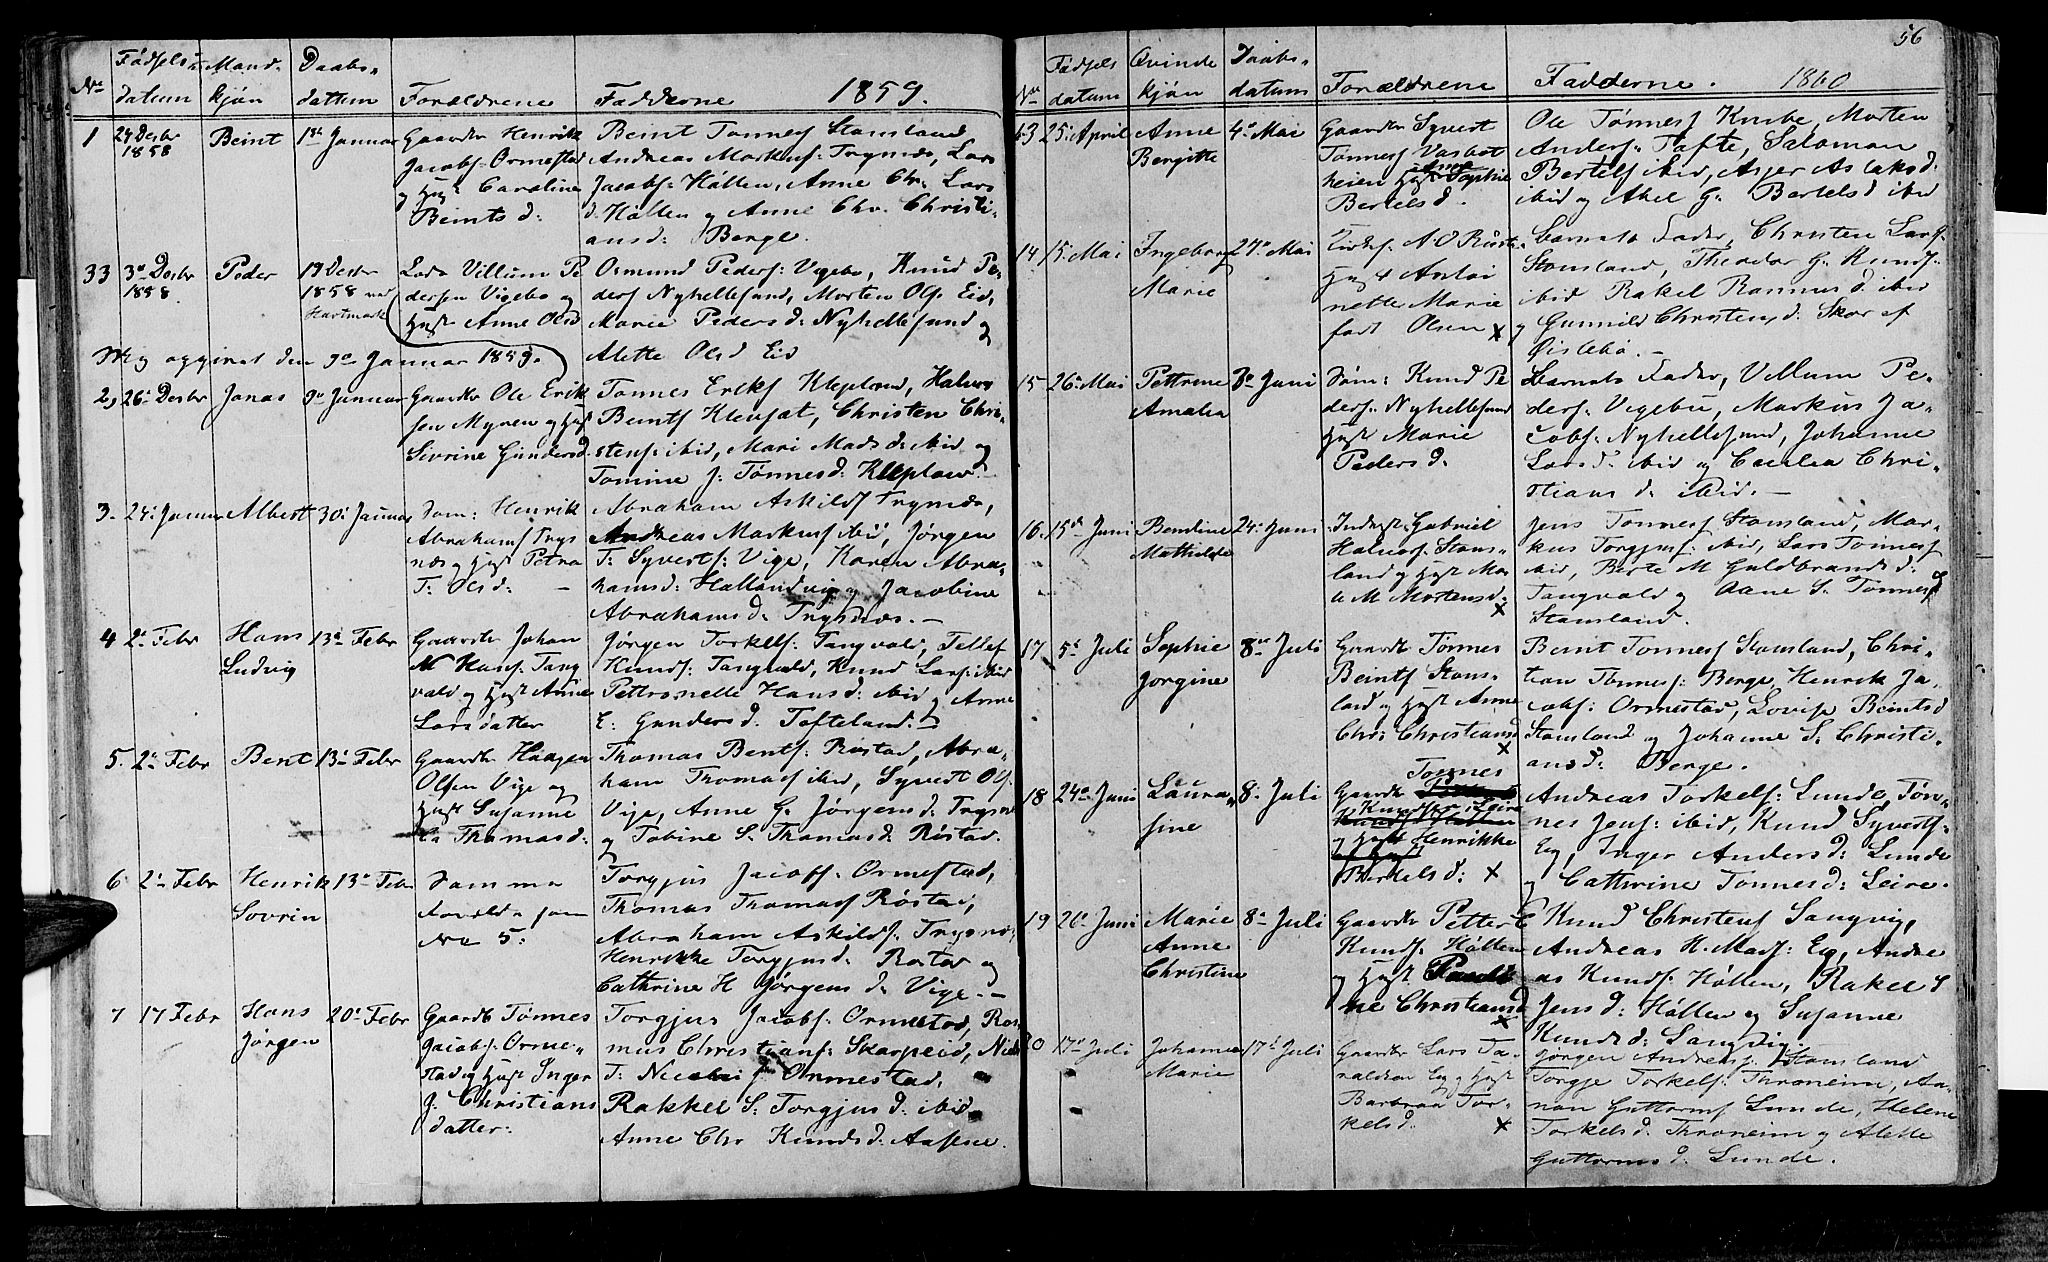 Nr
Fødsels
datum
Mand-
kjøn
Daabs-
dattum
Forældrene
Fadderne
1859.
1
27 Desbr
1858
Beint
1ste Januar
Gaardbr Henrik
Jacobs: Ormestad
og Hust Caroline
Beintsd:
Beint Tønnes: Stamsland
Andreas Markus: Trysnæs, Lars
Jacobs: Høllen, Anne Chr. Lars
d. Høllen og Anne Chr. Christi-
ansd: Berge.
33
3de Desbr
1858.
Peder
19 Desbr
1858 ved
Hartmark
Lods Villum Pe
dersen Vigebo og
Hust Anne Olsd
Osmund Peders: Vigebo, Knud Pe-
ders Nyhellesund, Morten Ols Eid,
Marie Pedersd: Nyhellesund og
Alette Olsd Eid
den 9de Januar 1859.
2,
26de Desbr
Jonas
9de Januar
Gaardbr Ole Erik
sen Myren og Hust
Sevrine Gundersd.
Tønnes Eriks Klepland, Halvor
Bents Klepsæt, Christen Chri-
stens: ibid, Mari Madsd: ibid og
Tomine J: Tønnesd: Kleplan-
3.
24de Januar
Albert
30de Januar
Søm: Henrik
Abrahams Trys
næs og Hust Petra
T. Olsd: -
Abraham Askilds Trysnæs,
Andreas Markus ibid, Jørgen
T: Syverts: Vige, Karen Abra-
hamsd: Hallandvig og Jacobine
Abrahamsd: Trysnæs. -
4
2de Febr
Hans
Ludvig
13de Febr
Gaardbr Johan
N Hans: Tang
vald og Hust Anne
Larsdatter
Jørgen Torkels: Tangvald, Tellef
Knuds: Tangvald, Knud Lars: ibid
Pettronelle Hansd: ibid og Anne
E: Gundersd. Tofteland. -
5.
2de Febr
Bent
13de Febr
Gaardbr Haagen
Olsen Vige og
Hust Susanne
Thomasd:
Thomas Bents: Røstad, Abra-
ham Thomas ibid, Syvert Ols.
Vige, Anne G. Jørgensd: Trysnæ
og Tobine S. Thomasd. Røstad.
6
2de Febr
Henrik
Sovrin
13de Febr
Samme
Forældre som
No 5.
Torgjus Jacobs: Ormestad,
Thomas Thomas Røstad,
Abraham Askilds: Trysnæs,
Henrikke Torgjusd: Rostad og
Cathrine H Jørgensd: Vige. -
7
17 Febr
Hans
Jørgen
20de Febr
Gaardb Tønnes
Jacobs: Orme-
stad og Hust Inger
J. Christians
datter:
Torgjus Jacobs: Ormestad, Ras-
mus Christians: Skarpeid,
T: Nicolai J: Ormestad,
Rakkel S: Torgjusd: ibid
Anne Chr Knudsd:
56
Nr
Fødsels
datum
Qvinde
kjøn
Daabs-
datum
Forældrene
Fadderne.
1860
13
25. April
Anne
Bergitte
4de Mai
Gaardbr Syvert
Tønnes Vasbot
heien Hust Anne Sophie
Bertelsd.
Ole Tønnes Knibe, Morten
Anders: Tofte, Salomon
Bertels ibid, Asjer Aslaksd.
ibid og Abel G. Bertelsd ibid
14
15. Mai
Ingeborg
Marie
27de Mai
Kirkes. A O Røste
Hust Antoi
nette Marie
født Olsen x
Barnets Fader, Christen Lars:
Stamsland, Theodor G. Knuds:
ibid Rakel Rasmusd ibid
og Gunnild Christensd: Skar af
Øislebø. -
15
26de Mai
Pettrine
Amalia
3de Juni
Søm: Knud Pe
ders: Nyhellesund
Hust Marie
Pedersd.
Barnets Fader, Villum Pe-
ders: Vigebu, Markus Ja-
cobs: Nyhellesund, Johanne
Larsd: ibid og Cecilia Chri-
stiansd: ibid. -
16.
15de Juni
Bendine
Mathilde
24de Juni
Inders: Gabriel
Halvors: Stams-
land og Hust Mar
M Mortensd.
x
Jens Tønnes Stamsland, Mar-
kus Torgjus: ibid, Lars Tønnes
ibid, Berte M Guldbrandsd:
Tangvald og Aane S. Tønnes
Stamsland.
17
5de Juli
Sophie
Jorgine
8de Juli
Gaardbr Tønnes
Beints Stams-
land og Hust Anne
Chr: Christiansd
x
Beint Tønnes Stamsland, Chri-
tian Tønnes: Berge, Henrik Ja-
cobs: Ormestad, Lovise Beintsd
Stamsland og Johanne S. Christi-
ansd: Berge.
18
24de Juni
Laura
sine
8de Juli
Tønnes
Gaardbr
Knuds: Leire
og Hust Henrikke
Bertelsd: x
Andreas Torkels: Lunde, Tøn-
nes Jens: ibid, Knud Syverts
Eg, Inger Andersd: Lunde
og Cathrine Tønnesd: Leire.
19
26de Juni
Marie
Anne
Christine
8de Juli
Gaardbr Petter C
Knuds: Høllen
og Hust
ne Christiansd
x
Knud Christens Sangvig,
Andreas H. Mads: Eg, Andre
as Knuds: Høllen, Rakel S
Jensd: Høllen og Susanne
Knudsd: Sangvig.
20
17de Juli
Johanne
Marie
17de Juli
Gaardbr Lars Ta-
raldsen Eg og Hust
Barbroe Tor-
kelsd. x
Jørgen Andreas: Stamsland
Torgje Torkels: Throneim, Aa-
non Guttorms Lunde, Helene
Torkelsd. Throneim og Alette
Guttormsd. Lunde.